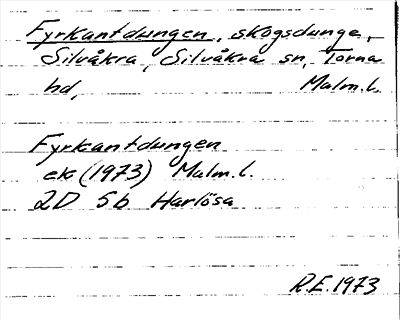 Fyrkantdungen, skogsdunge,
Silvåkra, Silvåkra sn, Torna
hd, Malm.l.
Fyrkantdungen
ek (1973) Malm.l.
2D 5b Harlösa
R.E. 1973